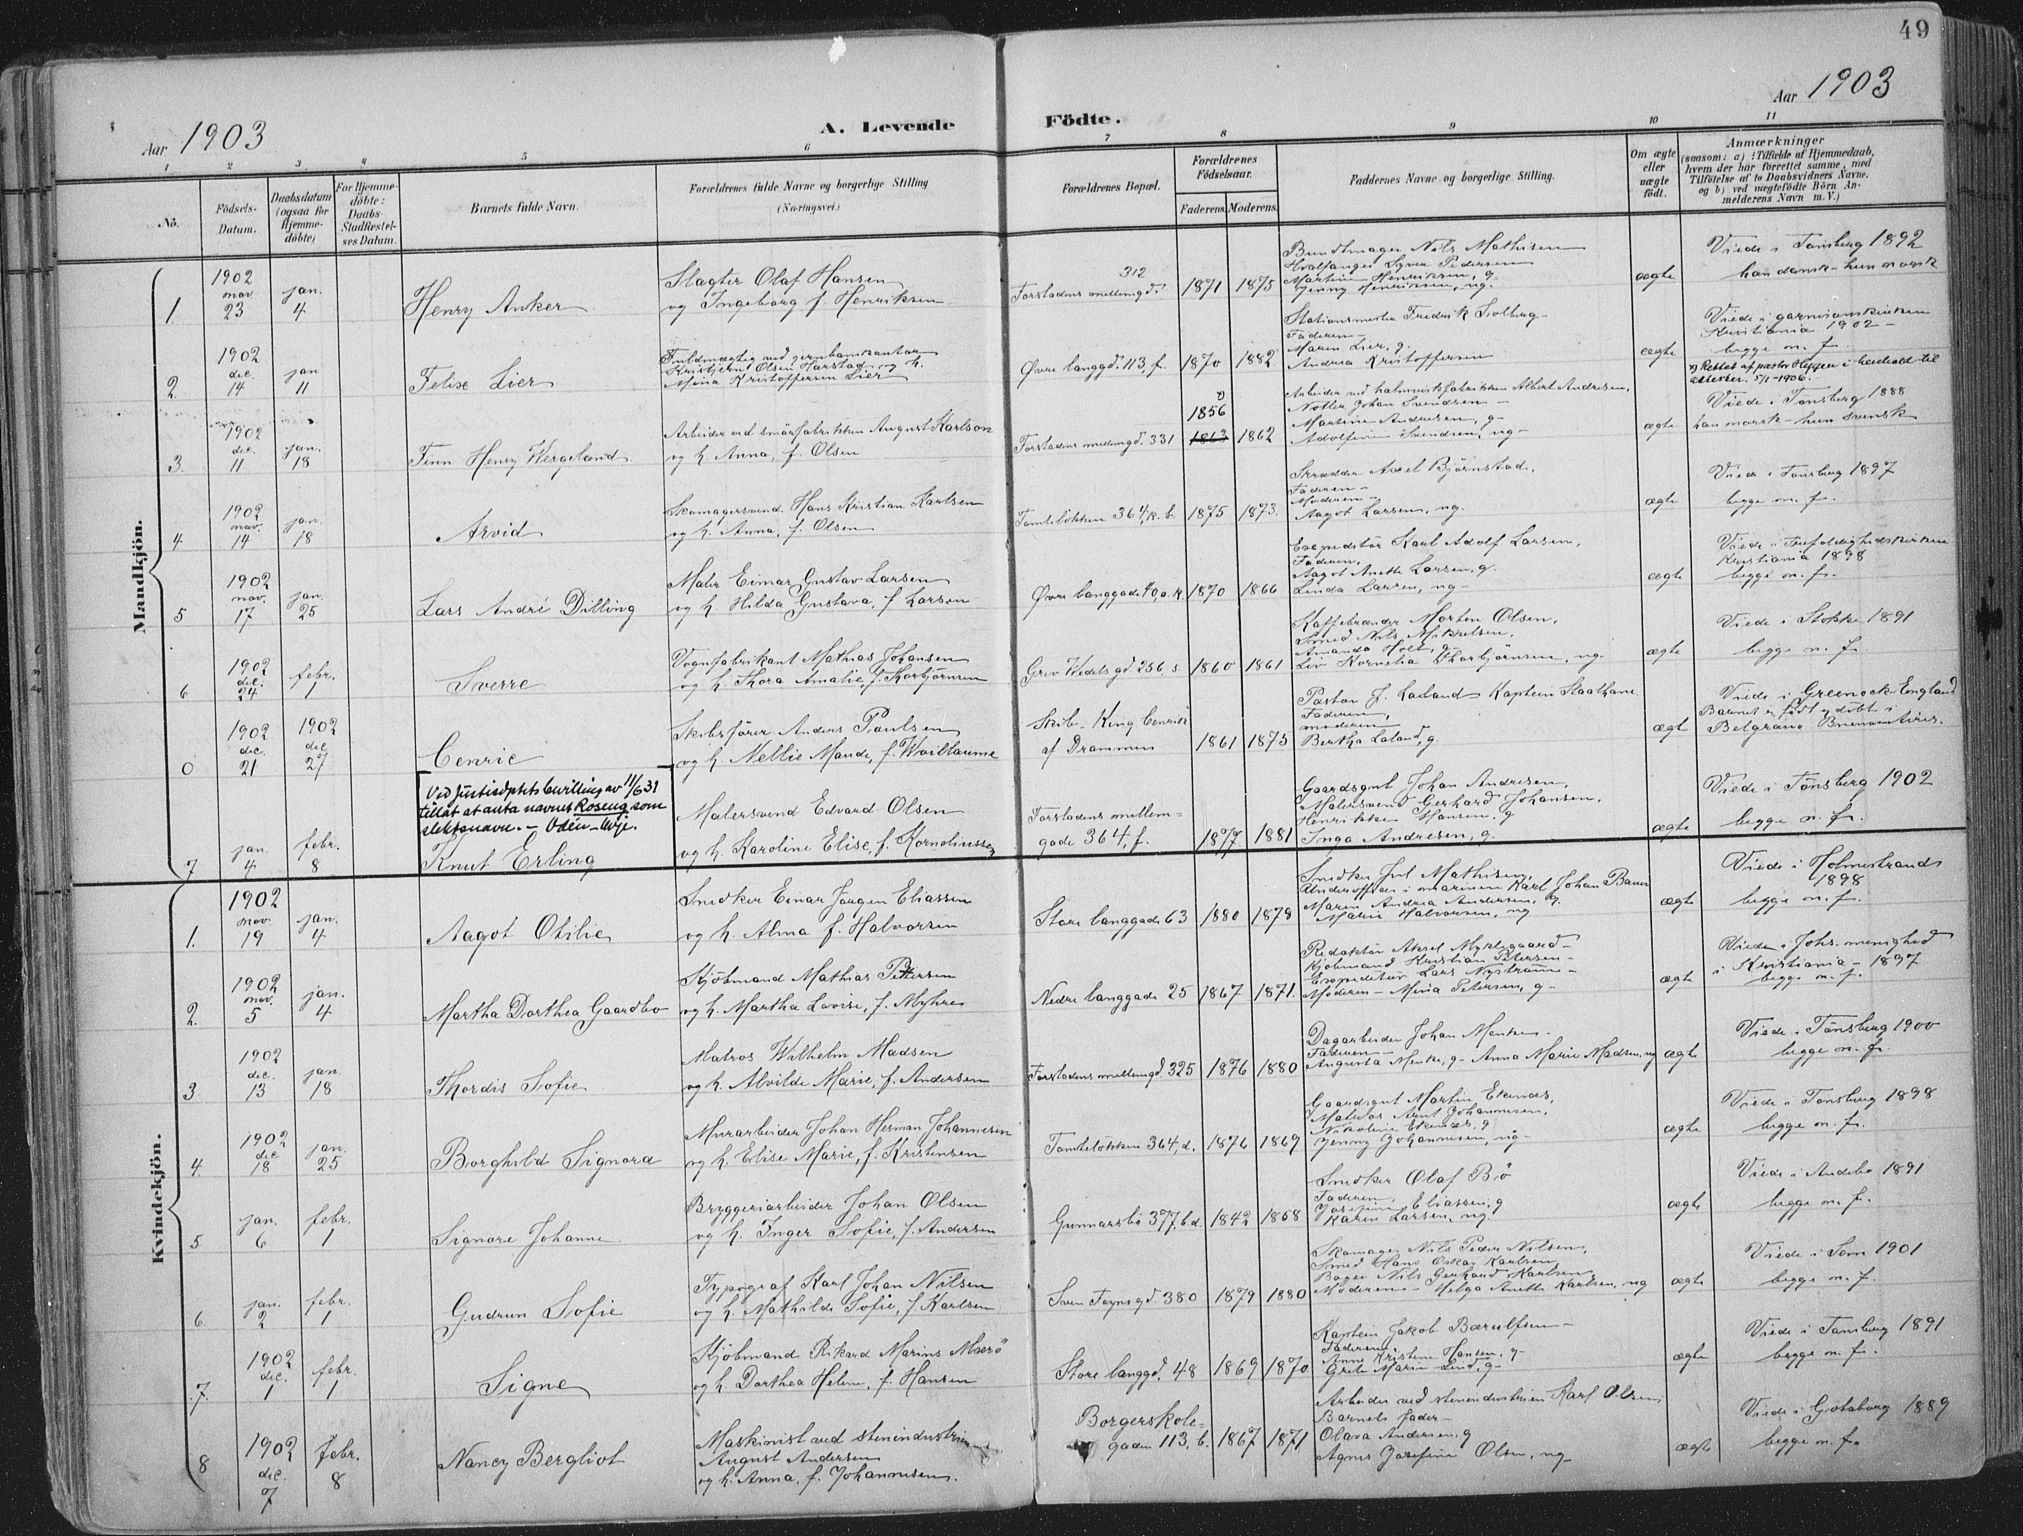 49
Aar 1903
A. Levende Födte.
Aar 1903
1 2 3 4 5 6 7 8 9 10 11
Nö.
Födsels-Datum.
Daabsdatum (ogsaa for Hjemme-döbte)
For Hjemme-döbte: Daabs-Stadfæstel-ses Datum.
Barnets fulde Navn.
Forældrenes fulde Navne og borgerlige Stilling (Næringsvei.)
Forældrenes Bopæl.
Forældrenes Födselsaar.
Faderens. Moderens.
Faddernes Navne og borgerlige Stilling.
Om ægte eller uægte födt.
Anmærkninger
(saasom: a) i Tilfælde af Hjemmedaab, hvem der har forrettet samme, med Tilföielse af to Daabsvidners Navne. og b) ved uægtefödte Börn An-melderens Navn m.V.)
Mandkjön.
1. 1902 nov 23 jan. 4 Henry Anker
Slagter Olaf Hansen
og Ingeborg f. Henriksen
Forstadens mellemgd. 312 1871 1875
Buntmager Nils Mathisen
Hvalfanger Syver Pedersen
Martine Henriksen, g.
Jenny Henriksen, ug.
ægte
Viede i Tönsberg 1892
han dansk - hun norsk
2. 1902 dec. 14 jan 11 Felise Lier
Fuldmægtig ved jernbanekontor
Kristjern Olsen Harstad og h.
Mina Kristoffersen Lier
Övre langgd. 113, f. 1870 1882
Stationsmester Fredrik Solberg-
Faderen-
Maren Lier, g.
Andrea Kristoffersen
ægte
Viede i garnisonskirken
Kristiania 1902 -
begge n. f.
x) Rettet af pastor Heggen i henhold til
attester. 5/1-1906.
3. 1902 dec. 11 jan. 18 Finn Henry Wergeland
Arbeider ved smörfabrikken August Karlson
og h. Anna, f. Olsen
Forstadens mellemgd. 331 x) 1856 1863 1862
Arbeider ved halmviskfabrikken Albert Andresen,
Notler Johan Svendsen -
Martine Andresen, g-
Adolfine Svendsen, ug-
ægte
Viede i Tönsberg 1888
han norsk - hun svensk
4 1902 nov. 14 jan. 18 Arvid
Skomagersvend Hans Kristian Karlsen
og h. Anna, f. Olsen
Tomtelökken 364, k. b. 1875 1873.
Skrædder Axel Björnstad,
Faderen-
Moderen-
Aagot Larsen, ug.
ægte
Viede i Tönsberg 1897
begge n. f.
5 1902 nov. 17 jan. 25 Lars André Dilling
Maler Eimar Gustav Larsen
og h. Hilda Gustava, f. Larsen
Övre langgade 40, a. k. 1870 1866
Expeditör Karl Adolf Larsen,
Faderen,
Aagot Aneth Larsen, g.
Linda Larsen, ug-
ægte
Viede i Trefoldighedskirken
Kristiania 1898
begge n. f.
6 1902 dec. 24 febr. 1 Sverre
Vognfabrikant Mathias Johansen
og h. Thora Amalie, f. Torbjörnsen
Grev Wedels gd 256. s. 1860 1861
Kaffebrænder Morten Olsen,
Smed Nils Mikkelsen,
Amanda Holt, g.
Liv Kornelia Thorbjörnsen, ug.
ægte
Viede i Stokke 1891
begge n. f.
0 1902 dec. 21 1902 dec 27 Cenric
Skibsförer Anders Paulsen
og h. Nellie Maude, f. Wuillaume
Skib - King Cenrik
af Drammen 1861 1875
Pastor J. Laland Kaptein Skathane
Faderen,
moderen
Bertha Laland, g
ægt
Viede i Greenock England
Barnet er födt og döbt i
Belgrano Buenos Aires.
Ved Justisdptets bevilling av 11/6 31
tillat at anta navnet Roseng som
slektsnavn. - Oden - Wje.
7 jan. 4 febr. 8 Knut Erling
Malersvend Edvard Olsen
og h. Karoline Elise, f. Korneliussen
Forstadens mellem-
gade 364, f. 1877 1881
Gaardsgut Johan Andresen,
Malersvend Gerhard Johansen,
Henrikke Hansen, g
Inga Andresen, g.
ægte
Viede i Tönsberg 1902
begge n. f.
Kvindekjön.
1. 1902 nov. 19 jan. 4 Aagot Otilie
Snedker Einar Jörgen Eliassen
og h. Alma f. Halvorsen
Store langgade 63 1880 1879
Snedker Jul Mathisen,
Underofficer i marinen Karl Johan Bauer
Maren Andrea Andersen, g.
Marie Halvorsen, ug
ægte
Viede i Holmestrand
1898
begge n. f.
2. 1902 nov. 5 jan. 4 Martha Dorthea Gaardbo
Kjöbmand Mathias Petersen
og h. Martha Lovise, f. Myhre
Nedre langgade 25 1867 1871.
Redaktör Aksel Myklegaard-
Kjöbmand Kristian Petersen-
Expeditör Lars Nyström-
Moderen - Mina Petersen, g-
ægte
Viede i Johs. menighed
i Kristiania - 1897
begge n. f.
3 1902 dec. 13 jan. 18 Thordis Sofie
Matros Wilhelm Madsen
og h. Alvilde Marie, f. Andersen
Forstadens mellemgd 325 1876 1880
Dagarbeider Johan Menke-
Faderen-
Augusta Menke, g- Anna Marie Madsen, ug
ægte
Viede i Tönsberg 1900
begge n. f.
4. 1902 dec 18 jan. 25 Borghild Signora
Murarbeider Johan Herman Johannesen
og h. Elise Marie, f. Kristensen
Tomtelökken 364, d. 1876 1869
Gaardsgut Martin Ekenæs,
Matros Arnt Johannesen,
Nikoline Ekenæs, g
Jenny Johannesen, ug-
ægte
Viede i Tönsberg 1898
begge n. f.
5 jan. 6 febr. 1 Signore Johanne
Bryggeriarbeider Johan Olsen
og h. Inger Sofie, f. Andersen
Gunnarsbö 377, b. d. 1842 1858
Snedker Olaf Bö
Faderen,
Josefine Eliassen, g
Karen Larsen, ug.
ægte
Viede i Andebo 1891
begge n. f.
6 jan. 2 febr. 1 Gudrun Sofie
Typograf Karl Johan Nilsen
og h. Mathilde Sofie, f. Karlsen
Sven Foyns gd. 380 1879 1880
Skomager Nils Peder Nilsen,
Smed Hans Oskar Karlsen,
Bager Nils Gerhard Karlsen
Moderen - Helga Aneth Karlsen, ug
ægte
Viede i Sem 1901
begge n. f.
7. 1902 dec. 1 febr. 1 Signe
Kjöbmand Rikard Marius Moerö
og h. Dorthea Helene, f. Hansen
Store langgd, 48 1869 1870.
Kaptein Jakob Bærulfsen-
Faderen,
Anne Kristine Hansen, g-
Grete Marie Lind, g-
ægte
Viede i Tönsberg 1891
begge n. f.
8 1902 dec. 7 febr. 8 Nancy Bergliot
Maskinist ved stenindustrien
August Andersen
og h. Anna, f. Johannesen.
Borgerskole-
gaden 113, b. 1867 1871
Arbeider ved stenindustrien Karl Olsen
Barnets fader-
Olava Andersen, g
Agnes Josefine Olsen, ug
ægte
Viede i Göteborg 1889
begge n. f.